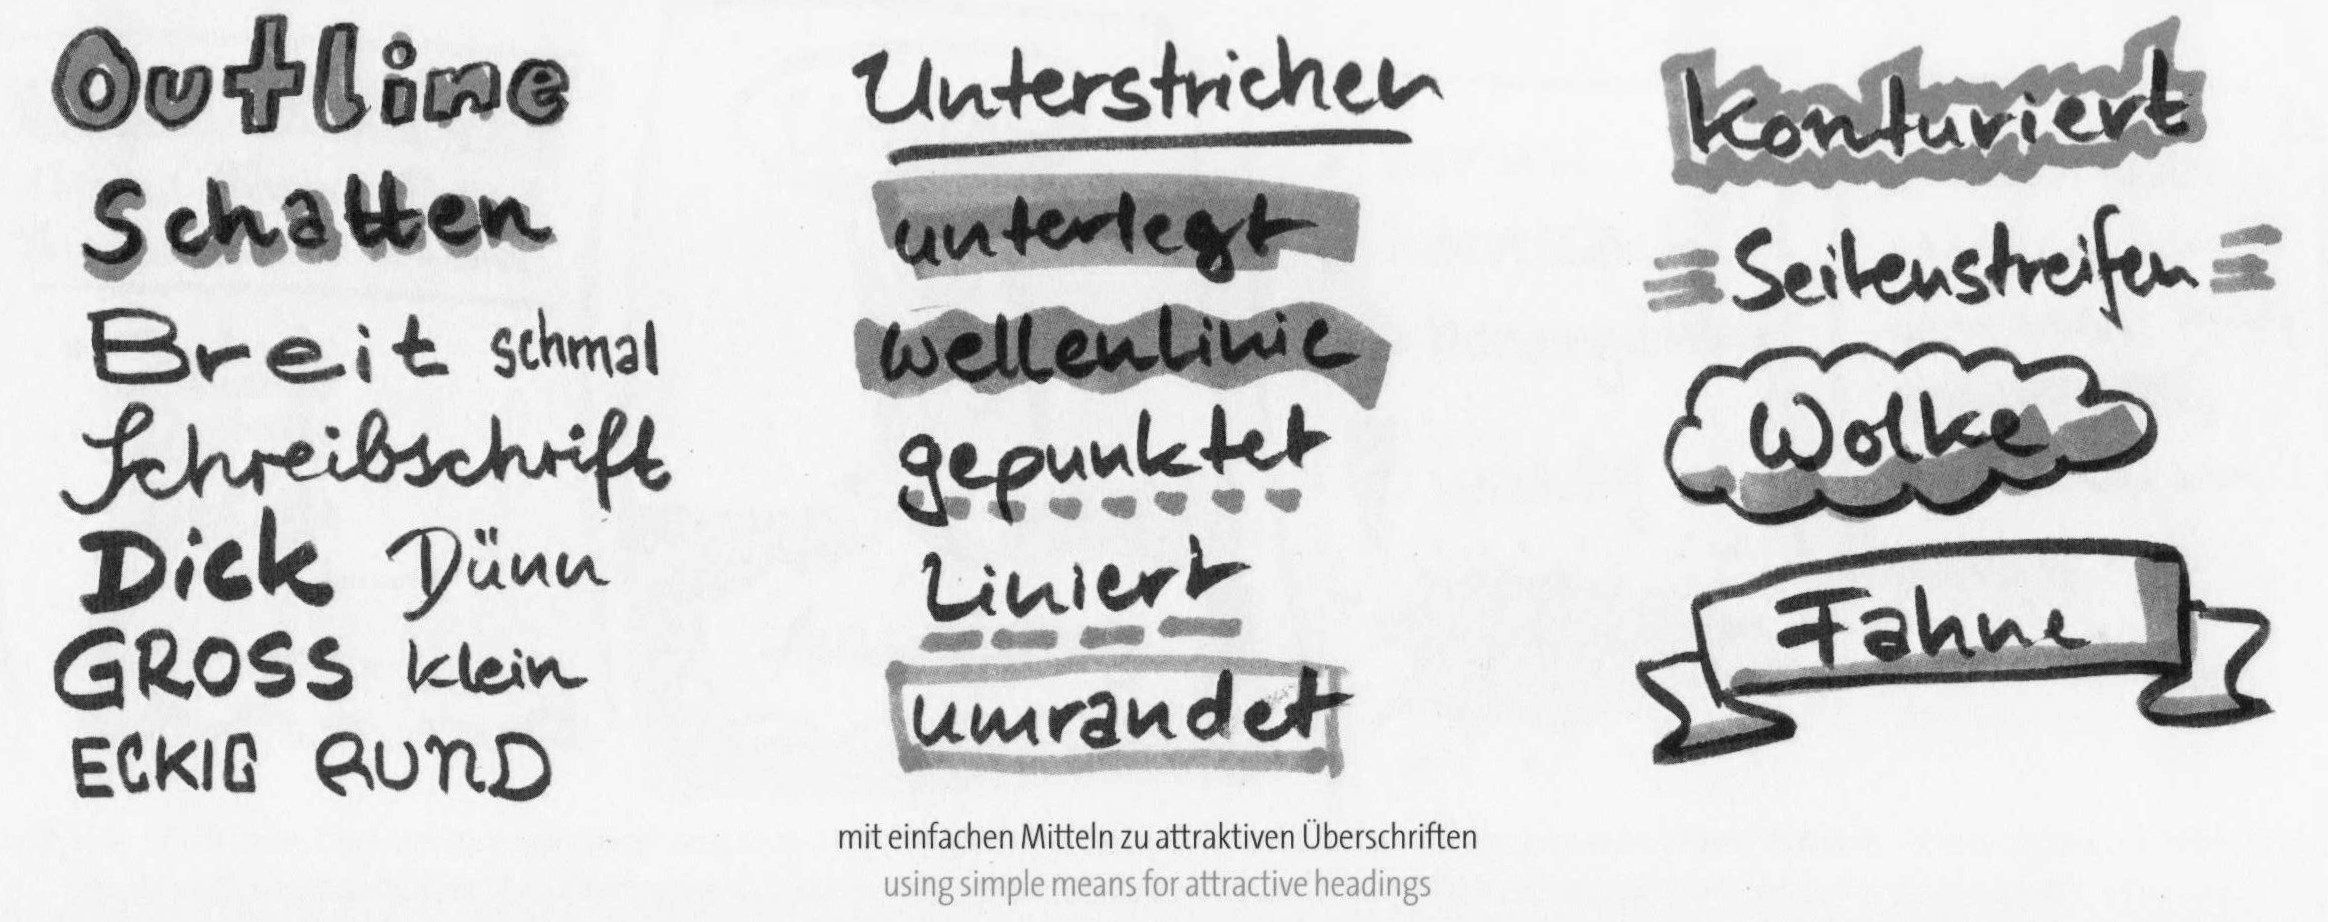 Outline
Schatten
Breit schmal
Schreibschrift
Dick Dünn
GROSS klein
ECKIG RUND
Unterstrichen
unterlegt
wellenlinie
gepunktet
Liniert
umrandet
Konturiert
Seitenstreifen
Wolke
Fahne
mit einfachen Mitteln zu attraktiven Überschriften
using simple means for attractive headings